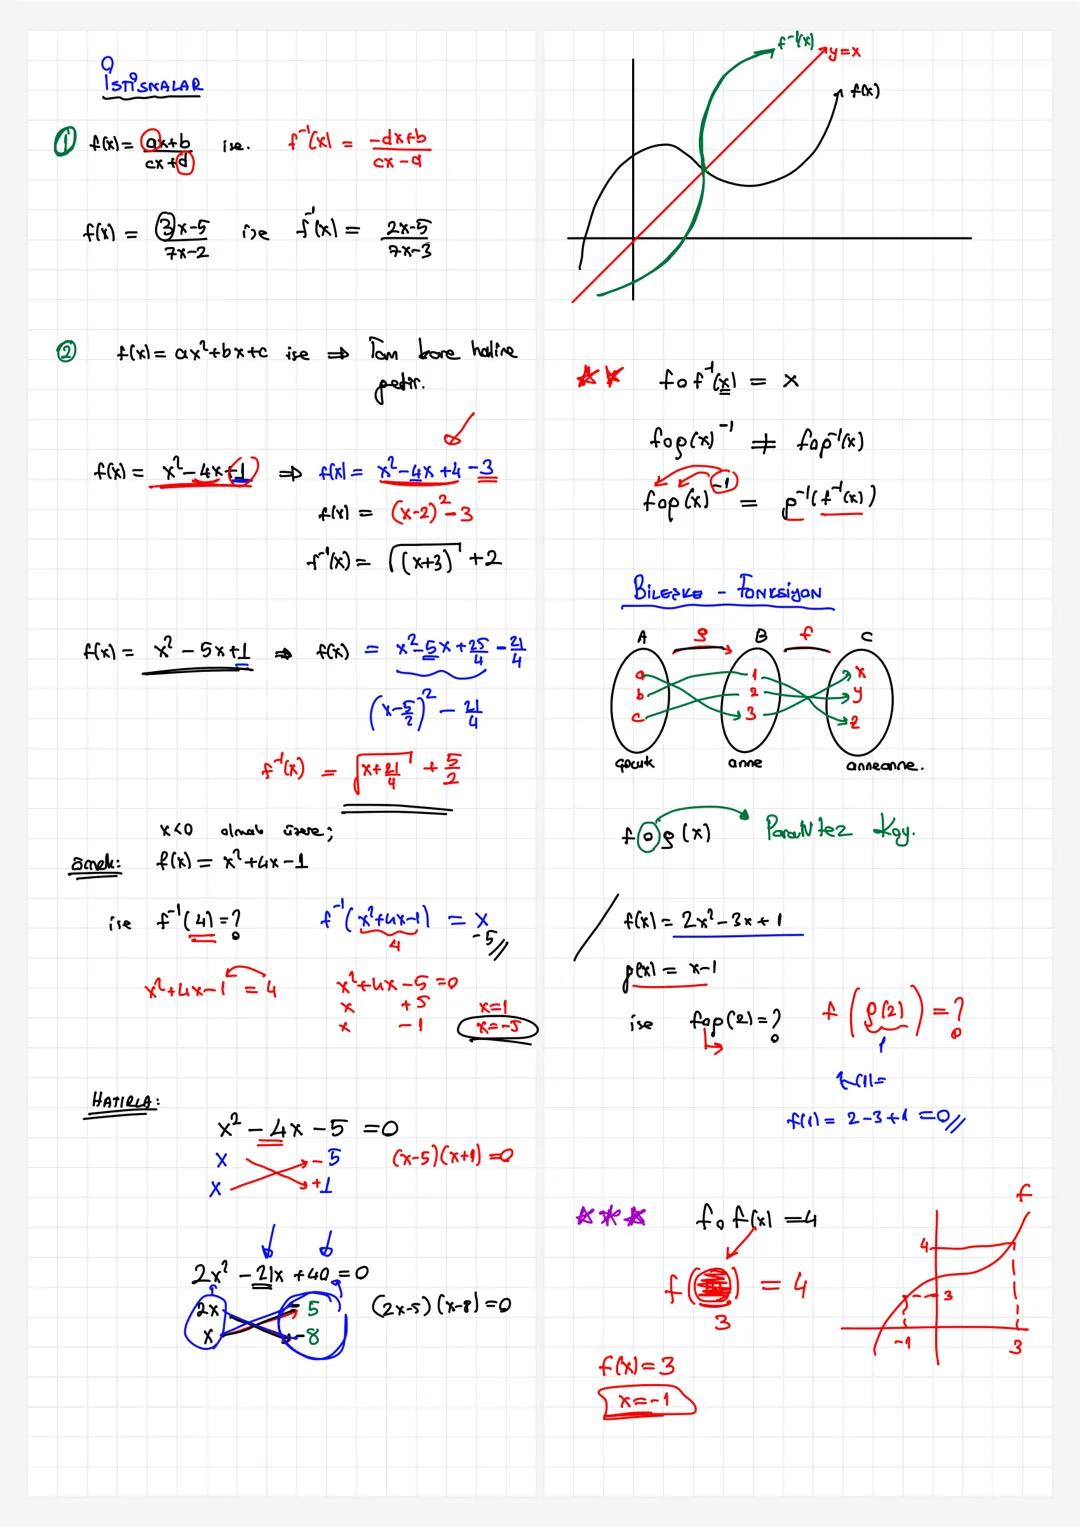 İSTİSNALAR
① f(x) = ax+b / cx+d ise. f⁻¹(x) = -dx+b / cx-a
f(x) = 3x-5 / 7x-2 ise f⁻¹(x) = 2x-5 / 7x-3
② f(x) = ax²+bx+c ise ⇒ Tam kare haline
getir.
f(x) = x²-4x+1 ⇒ f(x) = x²-4x+4-3
f(x) = (x-2)²-3
f⁻¹(x) = √(x+3) +2
f(x) = x²-5x+1 ⇒ f(x) = x²-5x+25/4-21/4
(x-5/2)² - 21/4
f⁻¹(x) = √(x+21/4) + 5/2
x<0 olmak üzere;
Örnek: f(x) = x²+4x-1
ise f⁻¹(4)=? f⁻¹(x²+4x-1) = x
4 -5
x²+4x-1 = 4 x²+4x-5=0
x +5 x=1
x -1 x=-5
HATIRLA:
x²-4x-5=0
x -5 (x-5)(x+1)=0
x +1
2x²-21x+40=0
2x 5 (2x-5)(x-8)=0
x -8
f⁻¹(x) y=x
f(x)
fof⁻¹(x) = x
fog(x)⁻¹ ≠ fog⁻¹(x)
fog(x)⁻¹ = g⁻¹(f⁻¹(x))
BİLEŞKE - FONKSİYON
A g B f C
a 1 x
b 2 y
c 3 z
çocuk anne anneanne.
fog(x) Parantez Koy.
f(x) = 2x²-3x+1
g(x) = x-1
ise fog(2)=? f(g(2))=?
1
f(1)=
f(1)= 2-3+1=0
fof(x)=4
f( ) = 4
3
f(x)=3
x=-1
f
4
3
-1 3